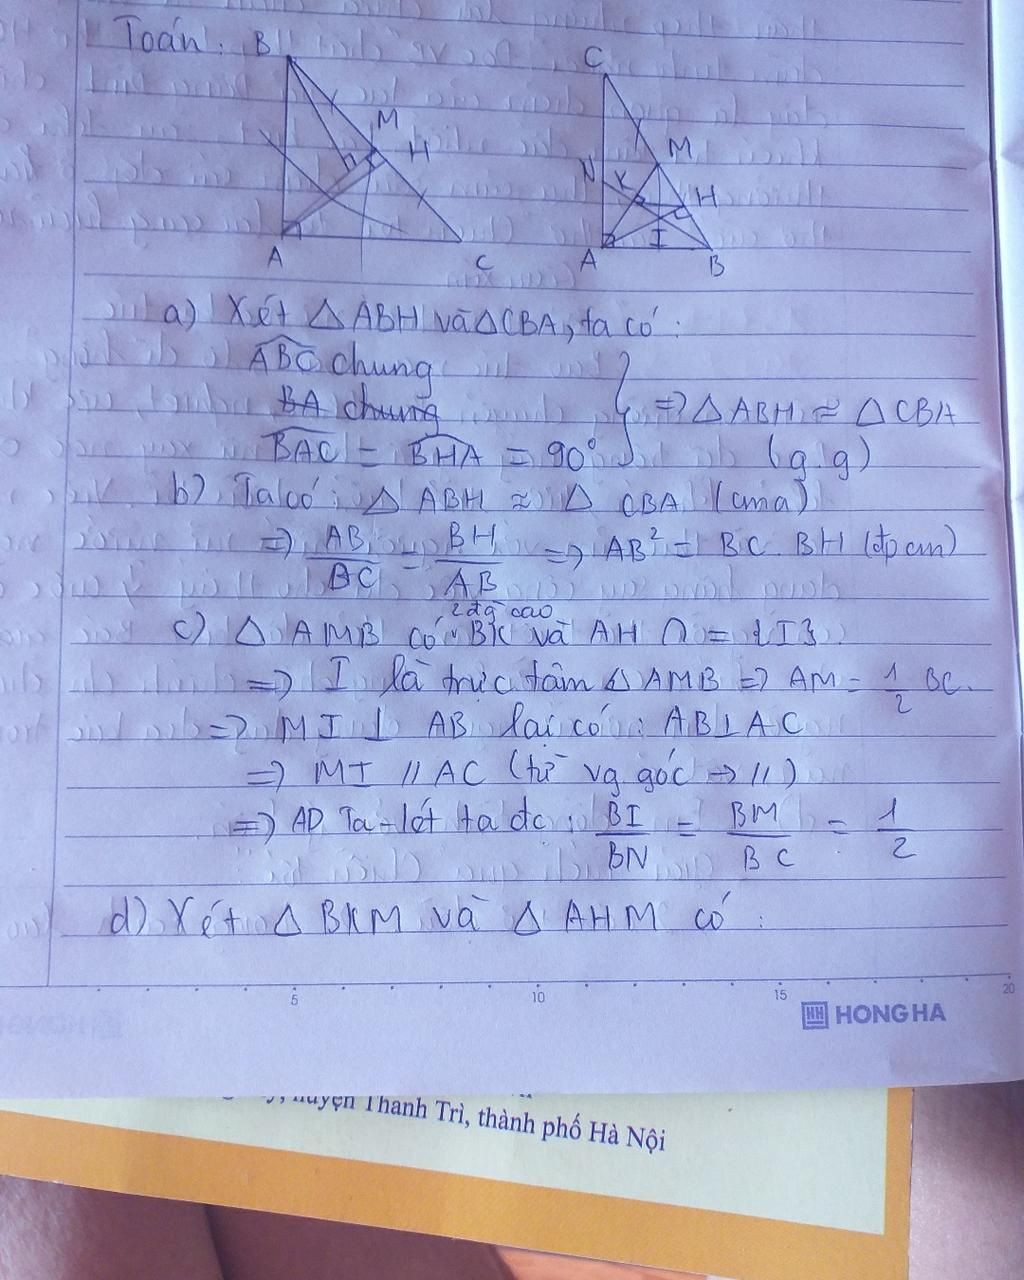 Toán:
B
M
H
A
C
C
M
N
K
H
I
A
B
a) Xét △ ABH và △CBA, ta có:
ABC chung
BA chung
BAC = BHA = 90°
=> △ ABH ≈ △ CBA
(g.g)
b) Ta có: △ ABH ≈ △ CBA (cma)
=> AB/BC = BH/AB => AB² = BC. BH (đpcm)
2 đg cao
c) △ AMB có BK và AH ∩ = {I}
=> I là trực tâm △ AMB => AM = 1/2 BC.
=> MI ⊥ AB lại có: AB⊥AC
=> MI // AC (từ vg góc → //)
=> AD Ta-lét ta đc: BI/BN = BM/BC = 1/2
d) Xét △ BKM và △ AHM có:
5 10 15 20
HH HONG HA
huyện Thanh Trì, thành phố Hà Nội